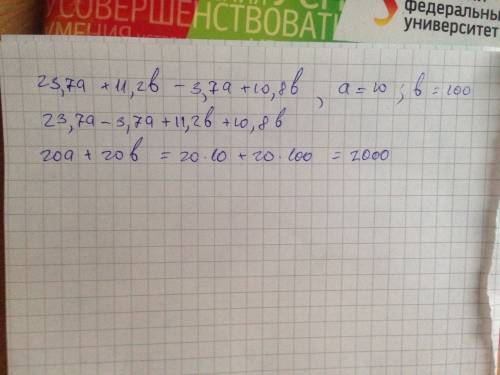 УСОВЕРШЕНСТВОВАТЬ
УМЕНИЯ
федеральны
университет
23,7а + 11,2в - 3,7а + 10,8в , а = 10 ; в = 100
23,7а - 3,7а + 11,2в + 10,8в
20а + 20в = 20·10 + 20·100 = 2000